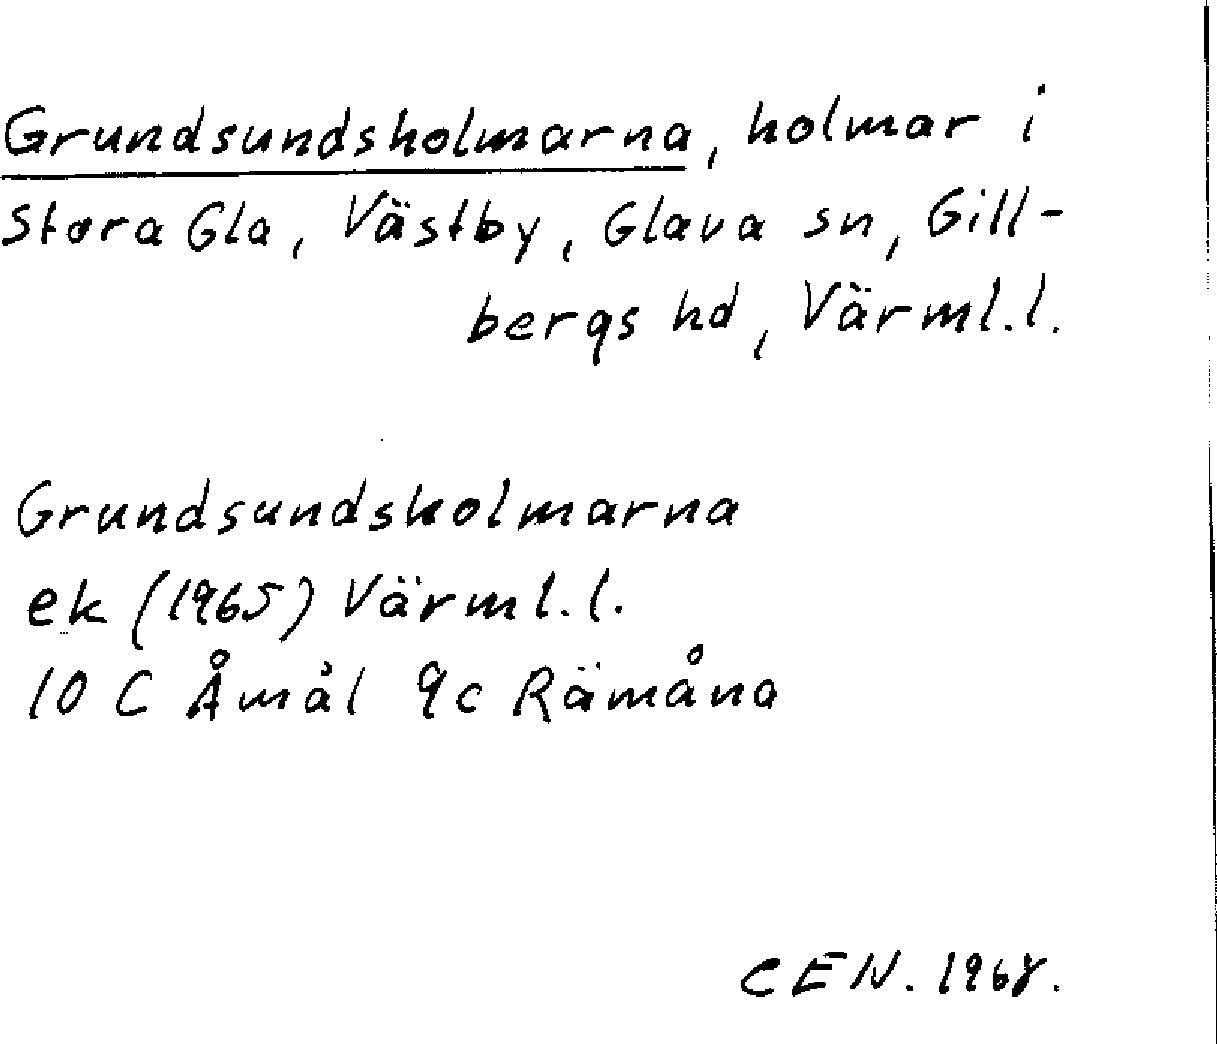 Grundsundsholmarna, holmar i
Stora Gla, Västby, Glava sn, Gill-
bergs hd, Värml.l.
Grundsundsholmarna
ek (1965) Värml.l.
10 C Åmål 9c Rämåna
CEN. 1968.